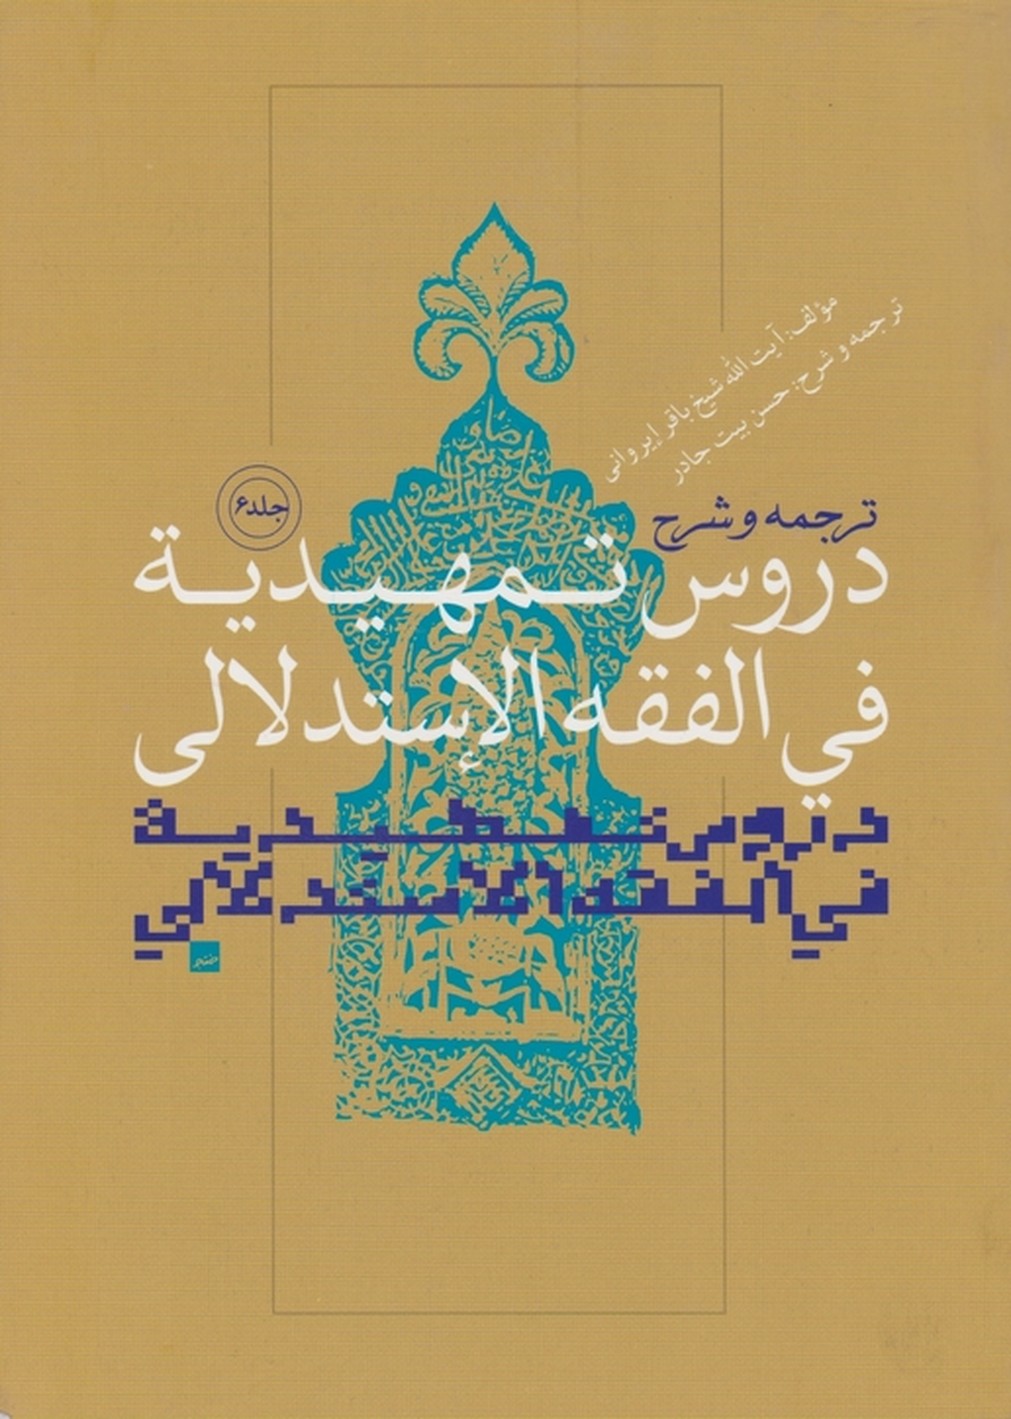 مؤلف: آیت الله شیخ باقر إیروانی
ترجمه و شرح: حسن بیت جادر
ترجمه و شرح
جلد۶
دروس تمهيدية
في الفقه الإستدلالی
دروس تمهيدية
في الفقه الاستدلالي